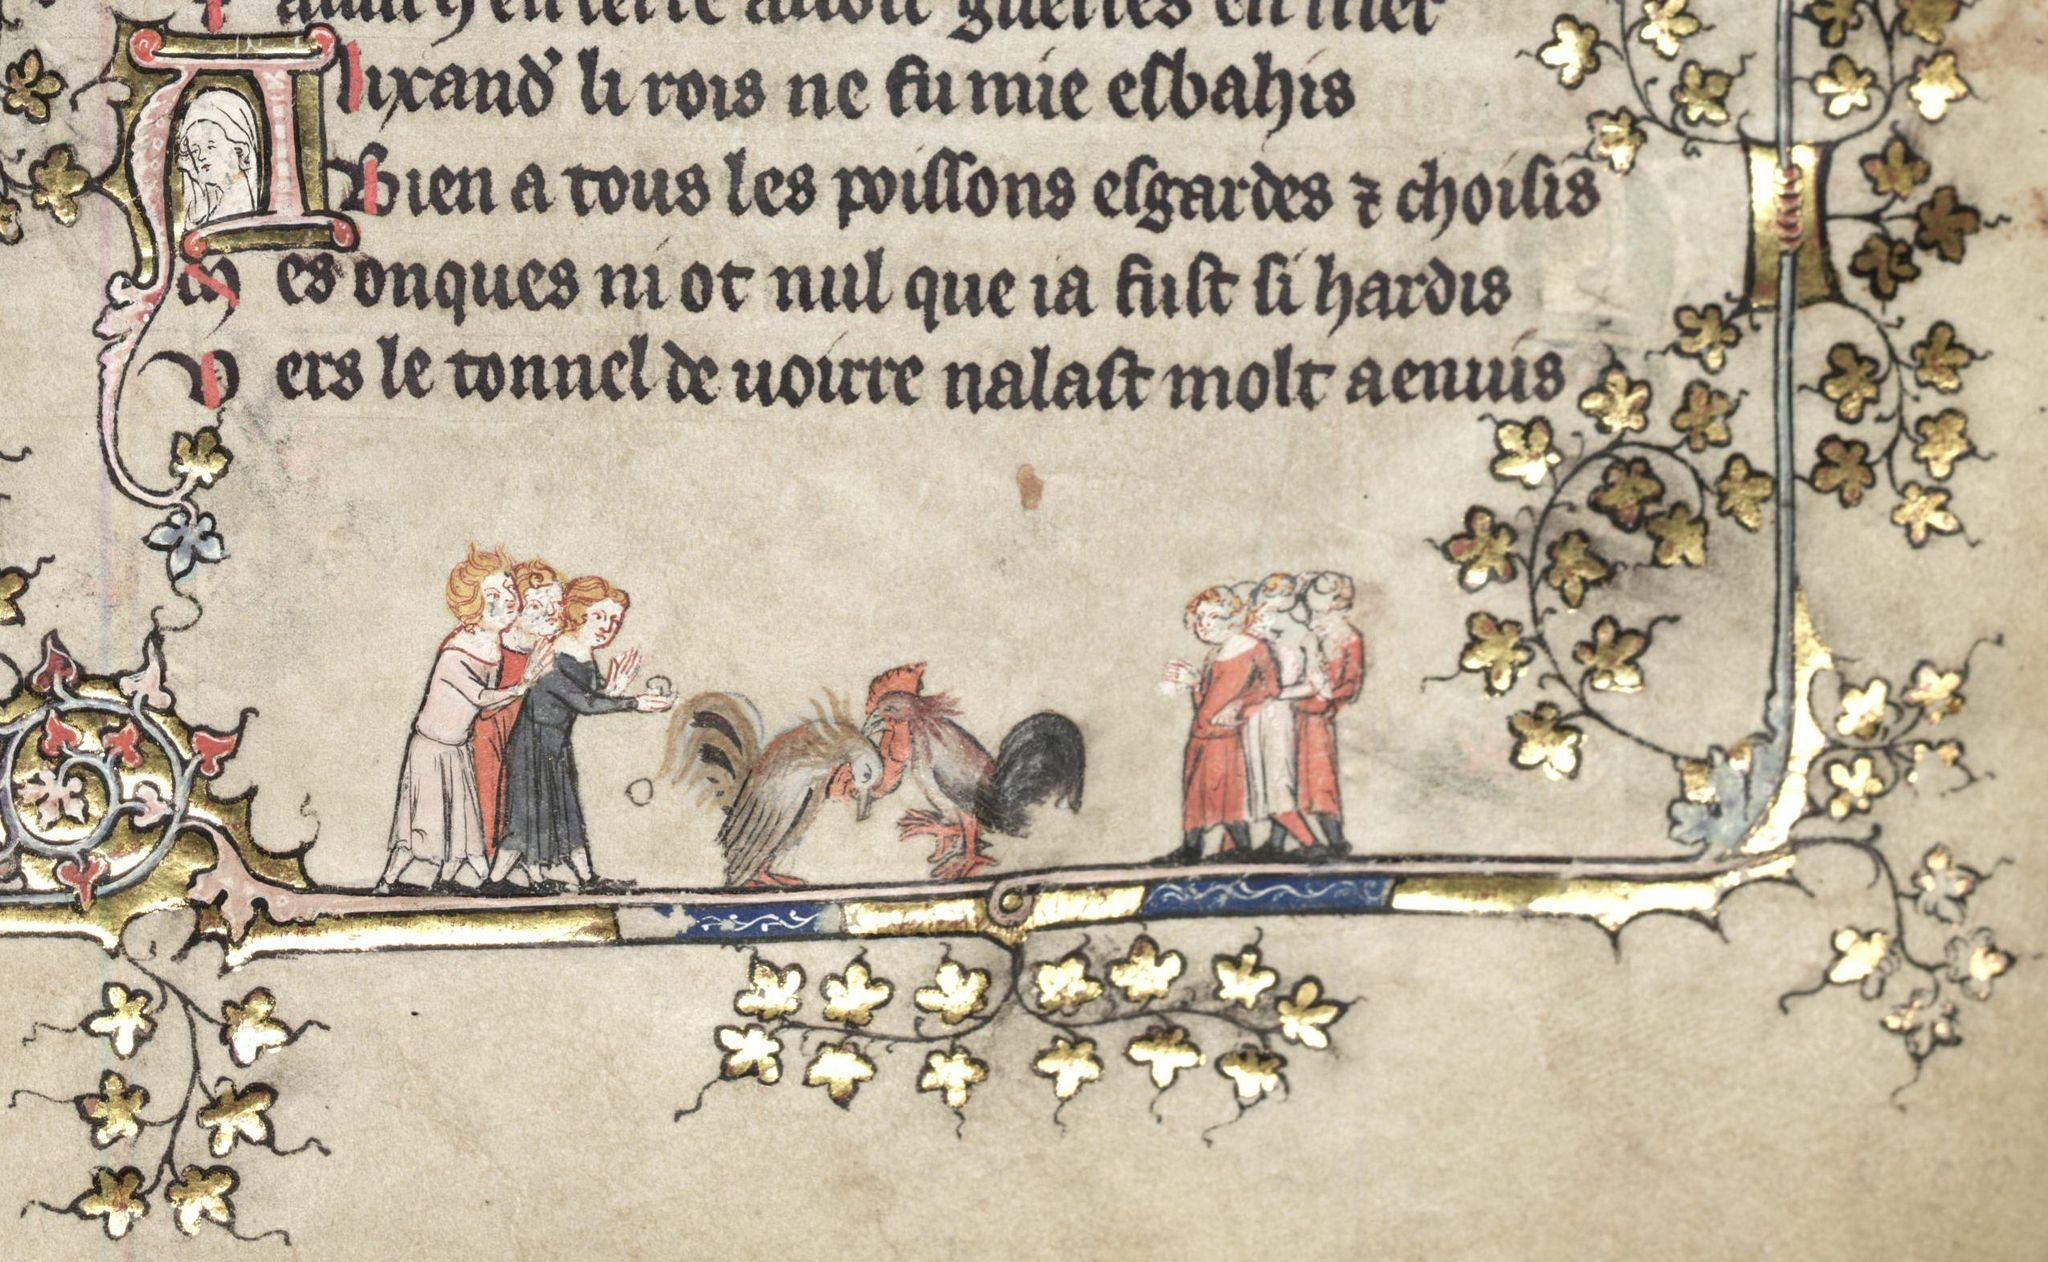 ainsi quen terre auoit guerres en mer
Alixand' li rois ne fu mie esbahis
Bien a tous les poissons esgardes ⁊ choisis
Mes onques ni ot nul que ia fust si hardis
Vers le tonnel de uoirre nalast molt aenuis